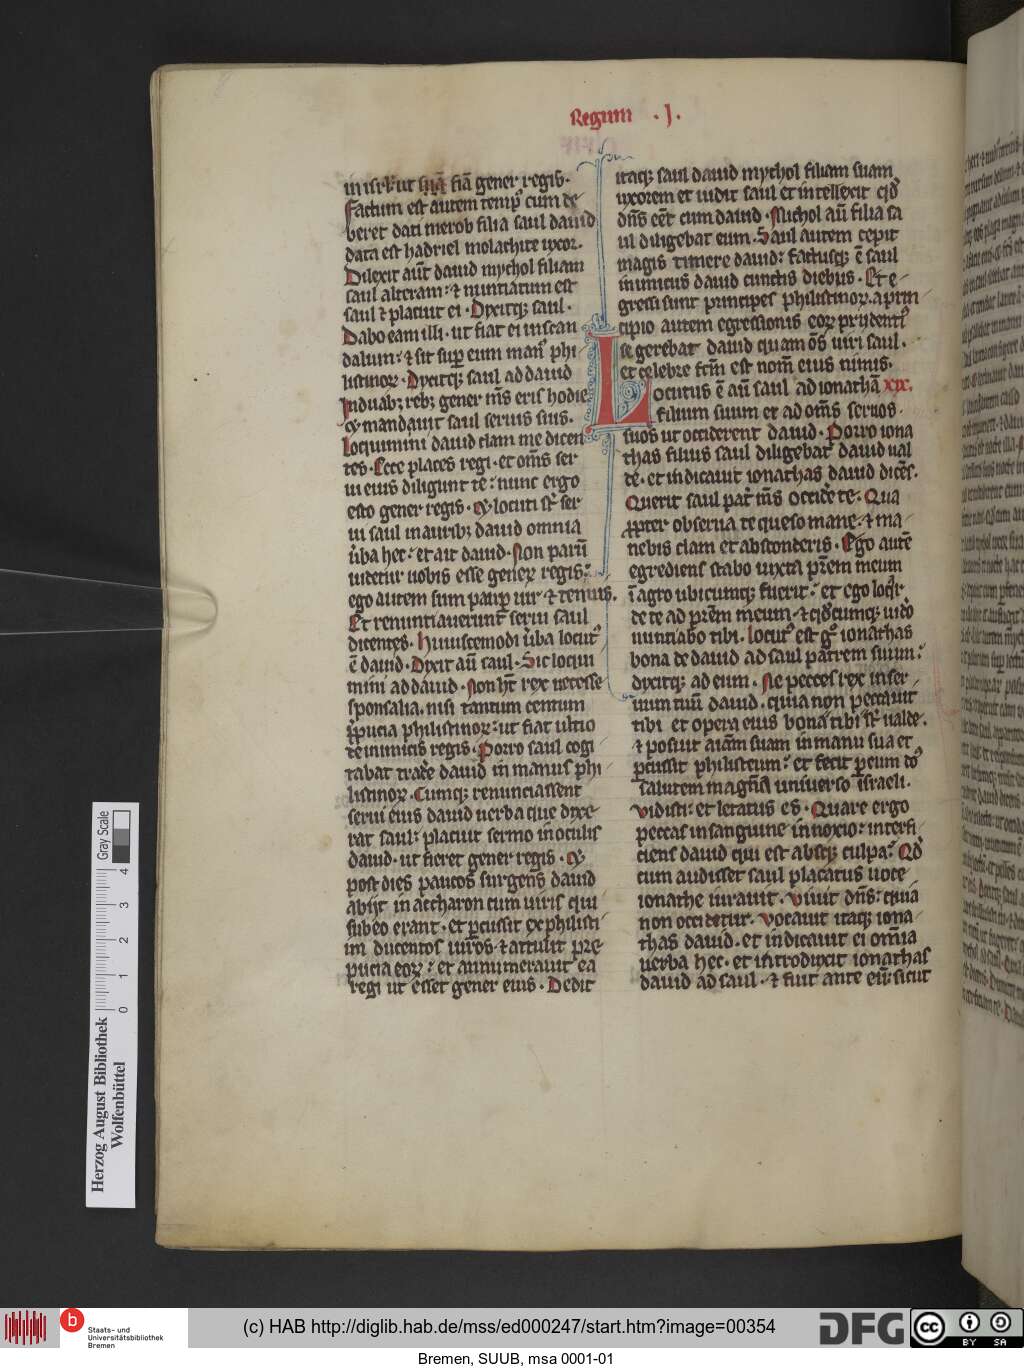 Regum .I.
in isrl ut fiā gener regis.
Factum est autem temp⁹ cum de
beret dari merob filia saul dauid
data est hadriel molathite uxor.
Dilexit aūt dauid mychol filiam
saul alteram: ⁊ nuntiatum est
saul ⁊ placuit ei. Dixitq; saul.
Dabo eam illi. ut fiat ei in scan
dalum: ⁊ sit sup eum man⁹ phi
listinoꝝ. Dixitq; saul ad dauid
In duab; reb; gener m̄s eris hodie
Et mandauit saul seruis suis.
Loquimini dauid clam me dicen
tes. Ecce places regi. et om̄s ser
ui eius diligunt te: nunc ergo
esto gener regis. Et locuti st̄ ser
ui saul in aurib; dauid omnia
ūba hec: et ait dauid. Non parū
uidetur uobis esse gener regis:
ego autem sum paup uir ⁊ tenuis.
Et renuntiauerunt serui saul
dicentes. Huiuscemodi ūba locut⁹
ē dauid. Dixit aū saul. Sic loqui
mini ad dauid. Non ht̄ rex necesse
sponsalia. nisi tantum centum
p̄pucia philistinoꝝ: ut fiat ultio
de inimicis regis. Porro saul cogi
tabat trad̄e dauid in manus phi
listinoꝝ. Cumq; renunciassent
serui eius dauid uerba que dixe
rat saul: placuit sermo in oculis
dauid. ut fieret gener regis. Et
post dies paucos surgens dauid
abijt in accharon cum uiris qui
sub eo erant. et ꝑcussit ex philisti
im ducentos uiros ⁊ attulit pre
pucia eoꝝ: et annumerauit ea
regi ut esset gener eius. Dedit
itaq; saul dauid mychol filiam suam
uxorem et uidit saul et intellexit qđ
dn̄s eēt cum dauid. Michol aū filia sa
ul diligebat eum. Saul autem cepit
magis timere dauid: factusq; ē saul
inimicus dauid cunctis diebus. Et e
gressi sunt principes philistinoꝝ. a prin
cipio autem egressionis eoꝝ prudenti⁹
se gerebat dauid quam om̄s uiri saul.
et celebre fcm̄ est nom̄ eius nimis.
Locutus ē aū saul ad ionathā xix.
filium suum et ad om̄s seruos
suos ut occiderent dauid. Porro iona
thas filius saul diligebat dauid ual
de. et indicauit ionathas dauid dicēs.
Querit saul pat̄ m̄s occid̄e te. Qua
ꝓpter obserua te queso mane. ⁊ ma
nebis clam et absconderis. Ego autē
egrediens stabo iuxta pr̄em meum
ī agro ubicumq; fuerit: et ego loqr̄
de te ad pr̄em meum. ⁊ qđcumq; uid̄o
nuntiabo tibi. Locut⁹ est g° ionathas
bona de dauid ad saul patrem suum:
dixitq; ad eum. Ne pecces rex in ser
uum tuū dauid. quia non peccauit
tibi et opera eius bona tibi st̄ ualde.
⁊ posuit aiam̄ suam in manu sua et
ꝑcussit philisteum: et fecit ꝑ eum do
salutem magnā uniuerso israeli.
Vidisti: et letatus es. Quare ergo
peccas in sanguine innoxio: interfi
ciens dauid qui est absq; culpa: Qđ
cum audisset saul placatus uoce
ionathe iurauit. Viuit dn̄s: quia
non occidetur. Vocauit itaq; iona
thas dauid. et indicauit ei omnia
uerba hec. et introduxit ionathas
dauid ad saul. ⁊ fuit ante eū: sicut
Herzog August Bibliothek
Wolfenbüttel
Gray Scale
0 1 2 3 4
b
Staats- und
Universitätsbibliothek
Bremen
(c) HAB http://diglib.hab.de/mss/ed000247/start.htm?image=00354
DFG
cc
BY SA
Bremen, SUUB, msa 0001-01